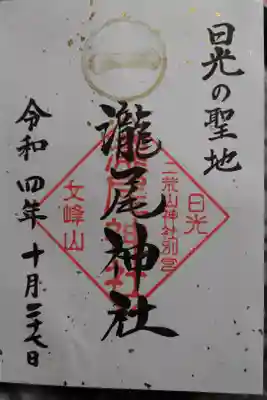 日光の聖地
瀧尾神社
令和四年十月二十七日
日光
二荒山神社別宮
瀧尾神社
女峰山